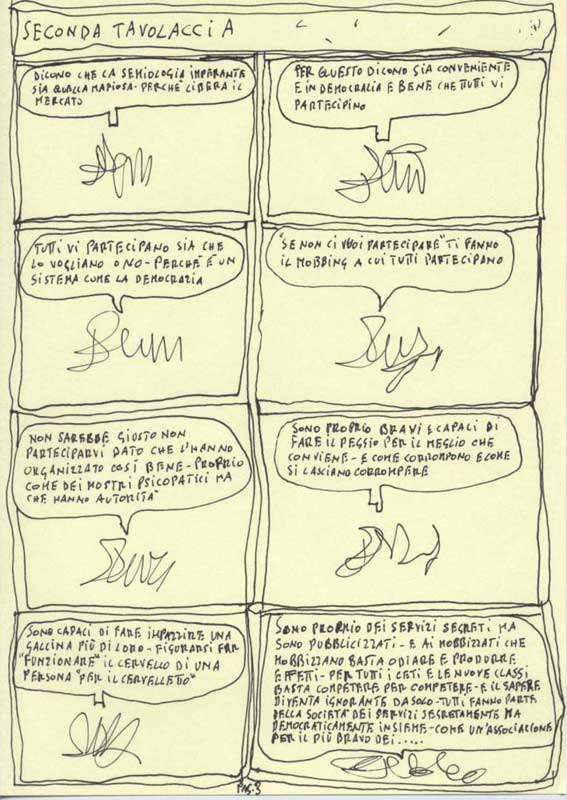 SECONDA TAVOLACCIA
DICONO CHE LA SEMIOLOGIA IMPERANTE
SIA QUALLA MAFIOSA - PERCHÈ LIBERA IL
MERCATO
PER QUESTO DICONO SIA CONVENIENTE
E IN DEMOCRALIA E BENE CHE TUTTI VI
PARTECIPINO
TUTTI VI PARTECIPANO SIA CHE
LO VOGLIANO O NO - PERCHÈ È UN
SISTEMA COME LA DEMOCRAZIA
"SE NON CI VUOI PARTECIPARE" TI FANNO
IL MOBBING A CUI TUTTI PARTECIPANO
NON SAREBBE GIUSTO NON
PARTECIPARVI DATO CHE L'HANNO
ORGANIZZATO COSÌ BENE - PROPRIO
COME DEI MOSTRI PSICOPATICI MA
CHE HANNO AUTORITA'
SONO PROPRIO BRAVI E CAPALI DI
FARE IL PEGGIO PER IL MEGLIO CHE
CONVIENE - E COME CORROMPONO E COME
SI LASCIANO CORROMPERE
SONO CAPALI DI FARE IMPAZZIRE UNA
GALLINA PIÙ DI LORO - FIGURARSI FAR
"FUNZIONARE" IL CERVELLO DI UNA
PERSONA "PER IL CERVELLETTO"
SONO PROPRIO DEI SERVIZI SEGRETI MA
SONO PUBBLICIZZATI - E AI MOBBIZZATI CHE
MOBBIZZANO BASTA ODIARE E PRODURRE
EFFETTI - PER TUTTI I CETI E LE NUOVE CLASSI
BASTA COMPETERE PER COMPETERE - E IL SAPERE
DIVENTA IGNORANTE DA SOLO - TUTTI FANNO PARTE
DELLA SOCIETA' DEI SERVIZI SEGRETAMENTE MA
DEMOCRATICAMENTE INSIEME - COME UN'ASSOCIAZIONE
PER IL PIÙ BRAVO DEI.....
PAG. 3